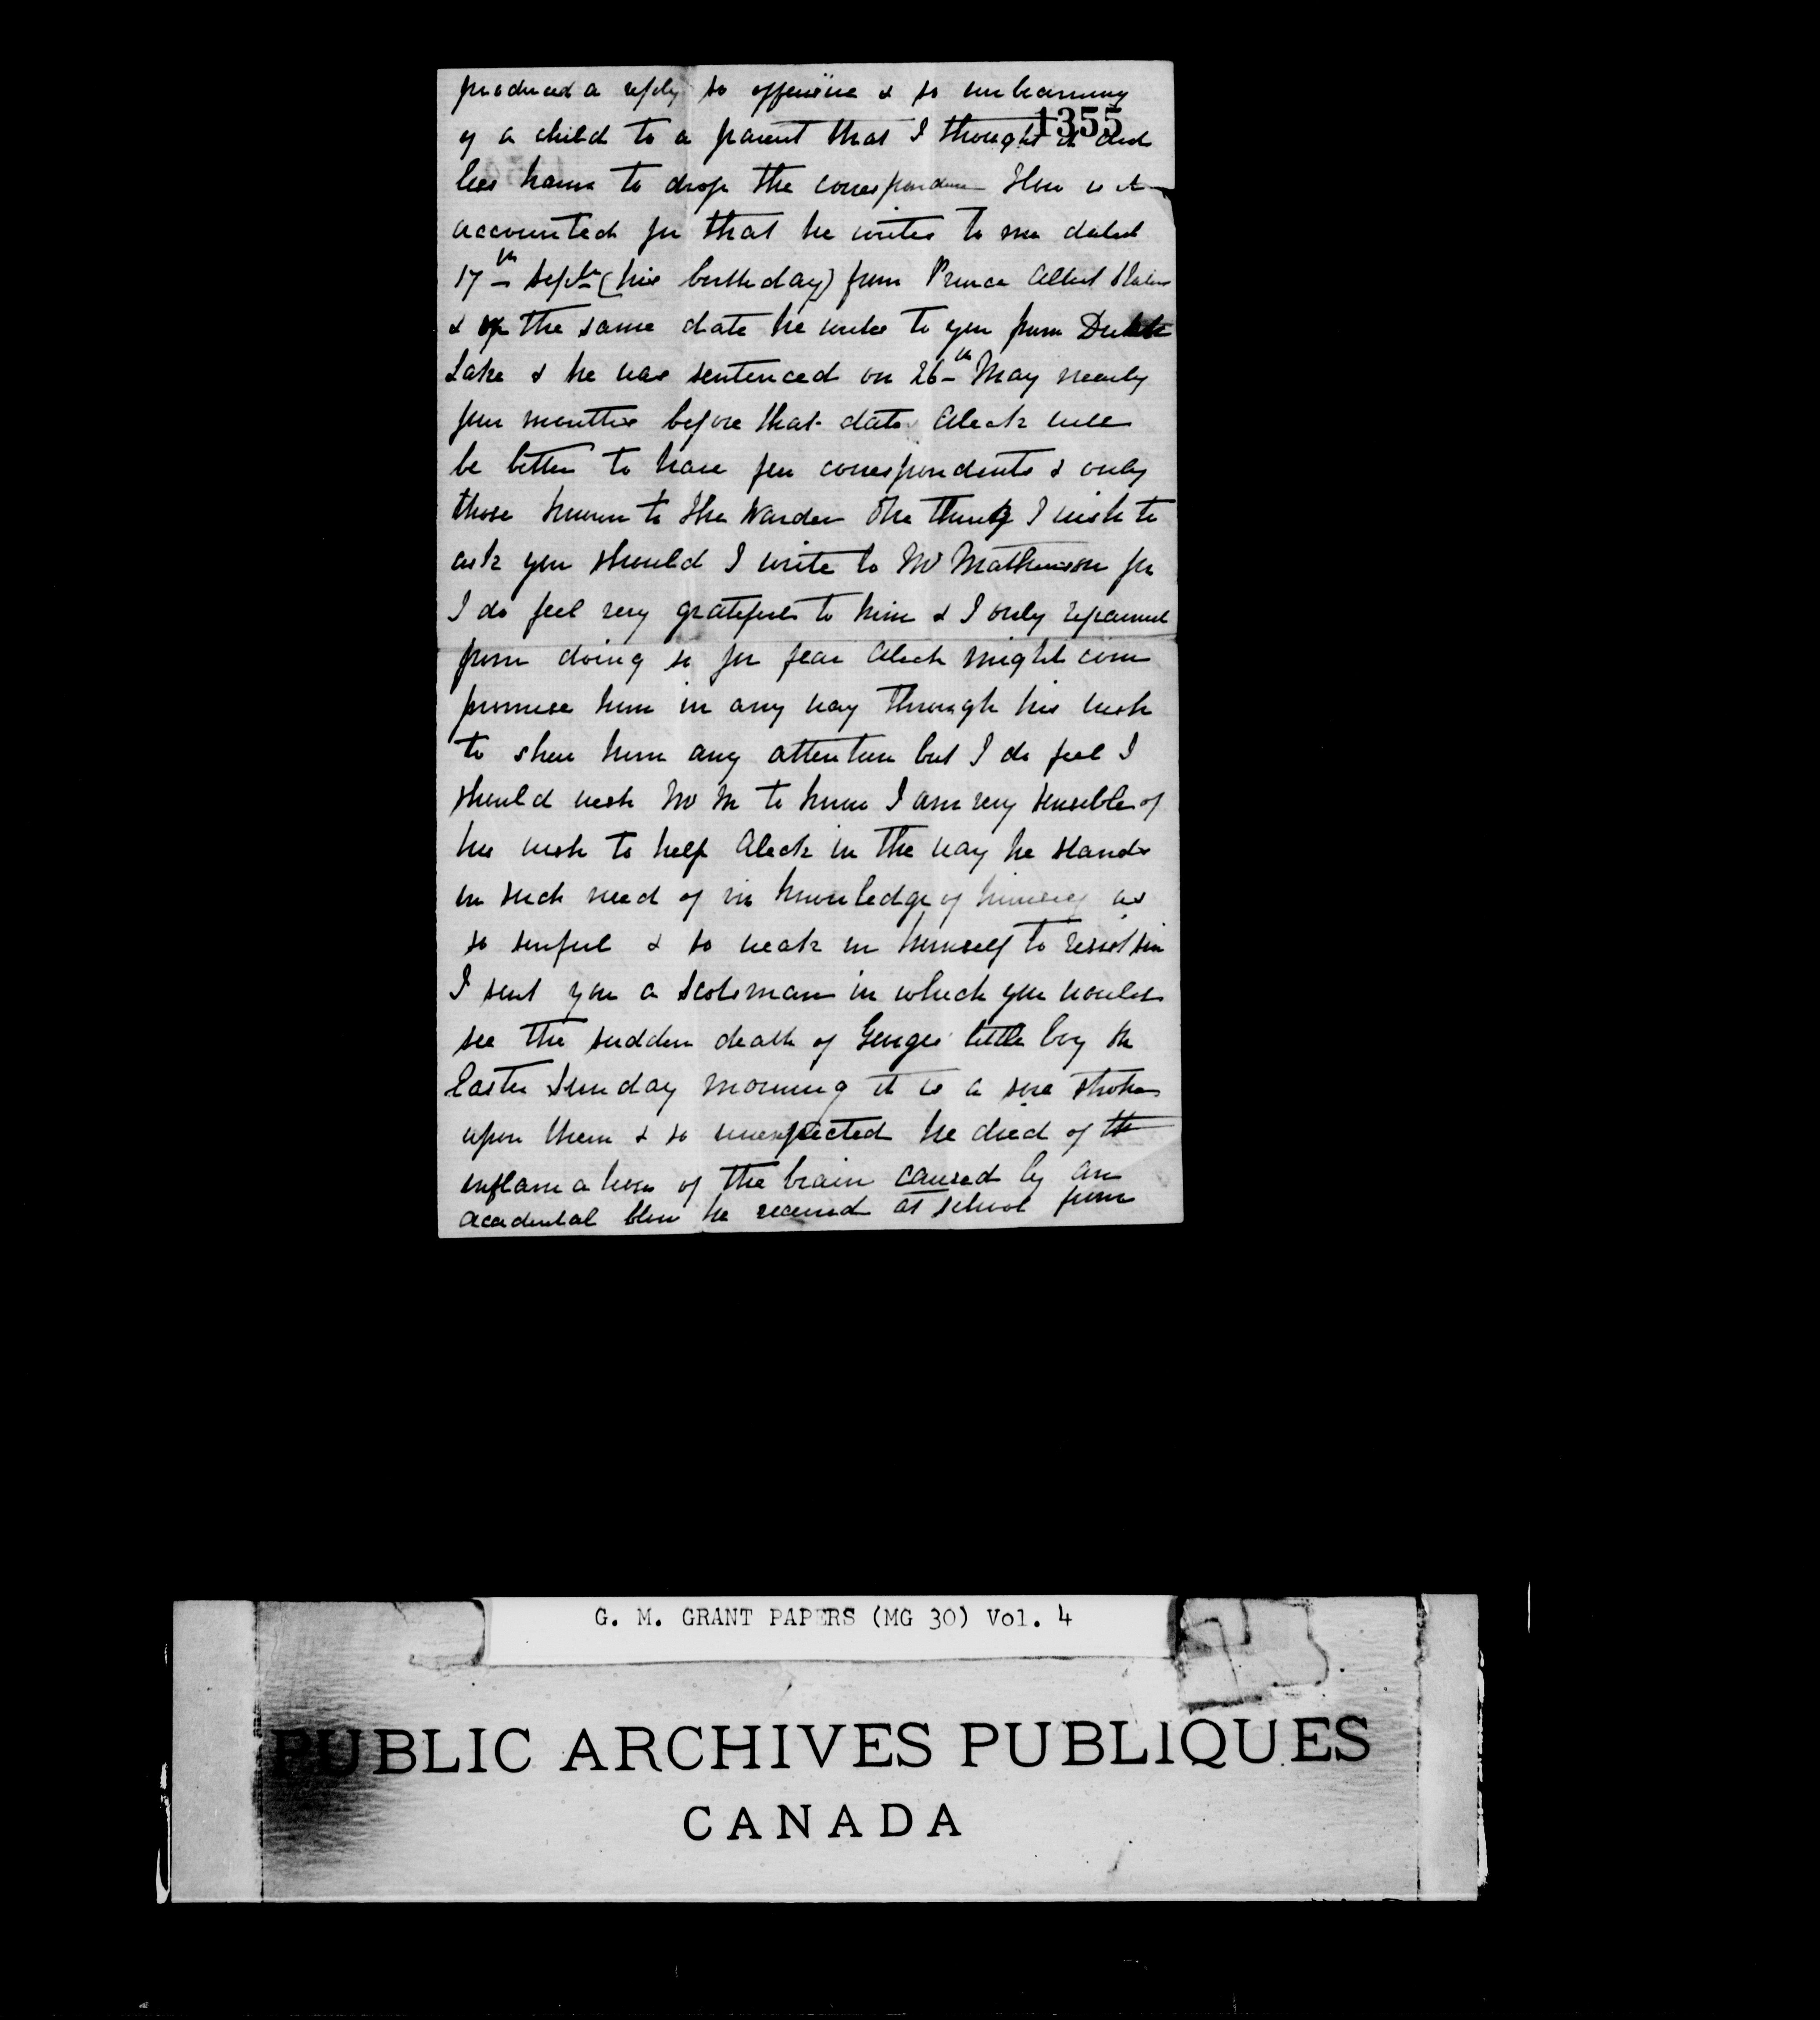 produced a reply so offensive & so unbecoming
1355
of a child to a parent that I thought it did
less harm to drop the correspondence How is it
accounted for that he writes to me dated
17th Septr (his birthday) from Prince Albert Station
& of the same date he writes to you from Duck
Lake & he was sentenced on 26th May nearly
four months before that date Aleck will
be better to have few correspondents & only
those known to the Warden One thing I wish to
ask you should I write to Mr Mathieson for
I do feel very grateful to him & I only refrained
from doing so for fear Aleck might com
promise him in any way through his wish
to shew him any attention but I do feel I
should wish Mr M to know I am very sensible of
his wish to help Aleck in the way he stands
in such need of in knowledge of himself as
so sinful & so weak in himself to resist sin
I sent you a Scotsman in which you would
see the sudden death of Georges little boy on
Easter Sunday morning it is a sore stroke
upon them & so unexpected he died of
inflamation of the brain caused by an
accidental blow he received at school from
G. M. GRANT PAPERS (MG 30) Vol. 4
PUBLIC ARCHIVES PUBLIQUES
CANADA